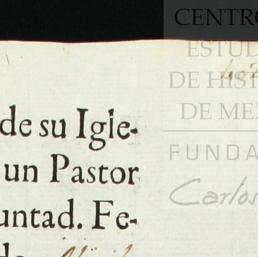 CENTRO
ESTUD
DE HIST
DE MEX
FUNDA
Carlos
de su Igle-
un Pastor
untad. Fe-